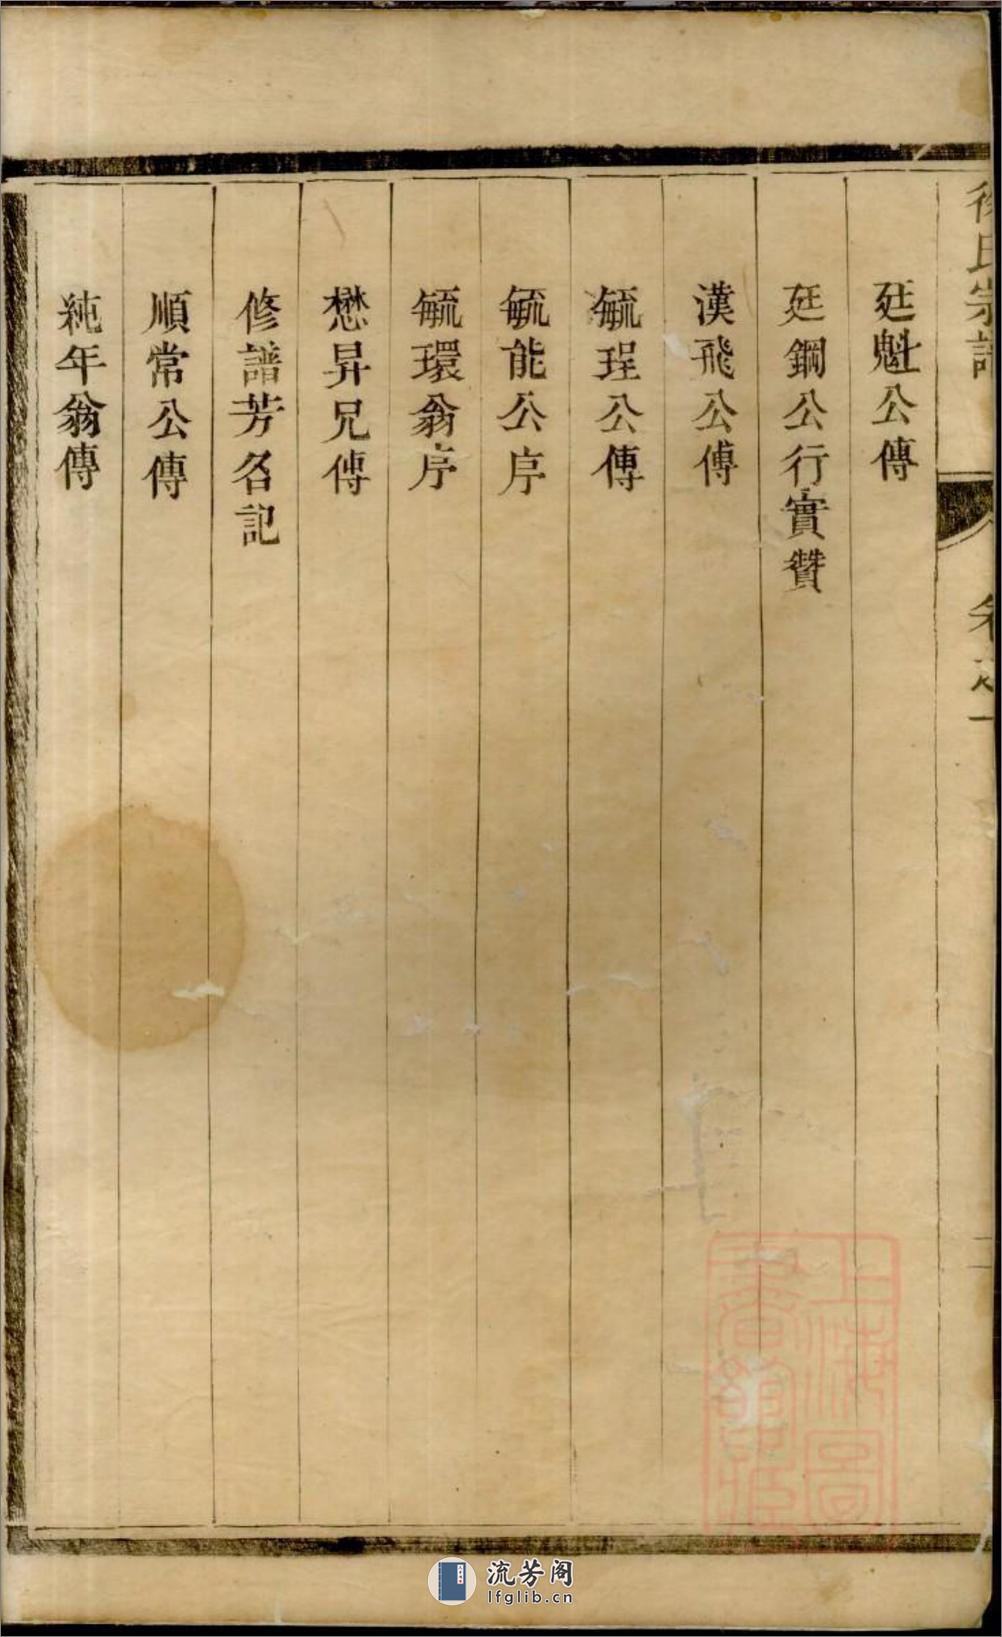 徐氏宗譜
卷之一
廷魁公傳
廷鋼公行實贊
漢飛公傳
毓珵公傳
毓能公序
毓環翁序
懋昇兄傳
修譜芳名記
順常公傳
純年翁傳
上海圖
書館藏
流芳阁
lfglib.cn